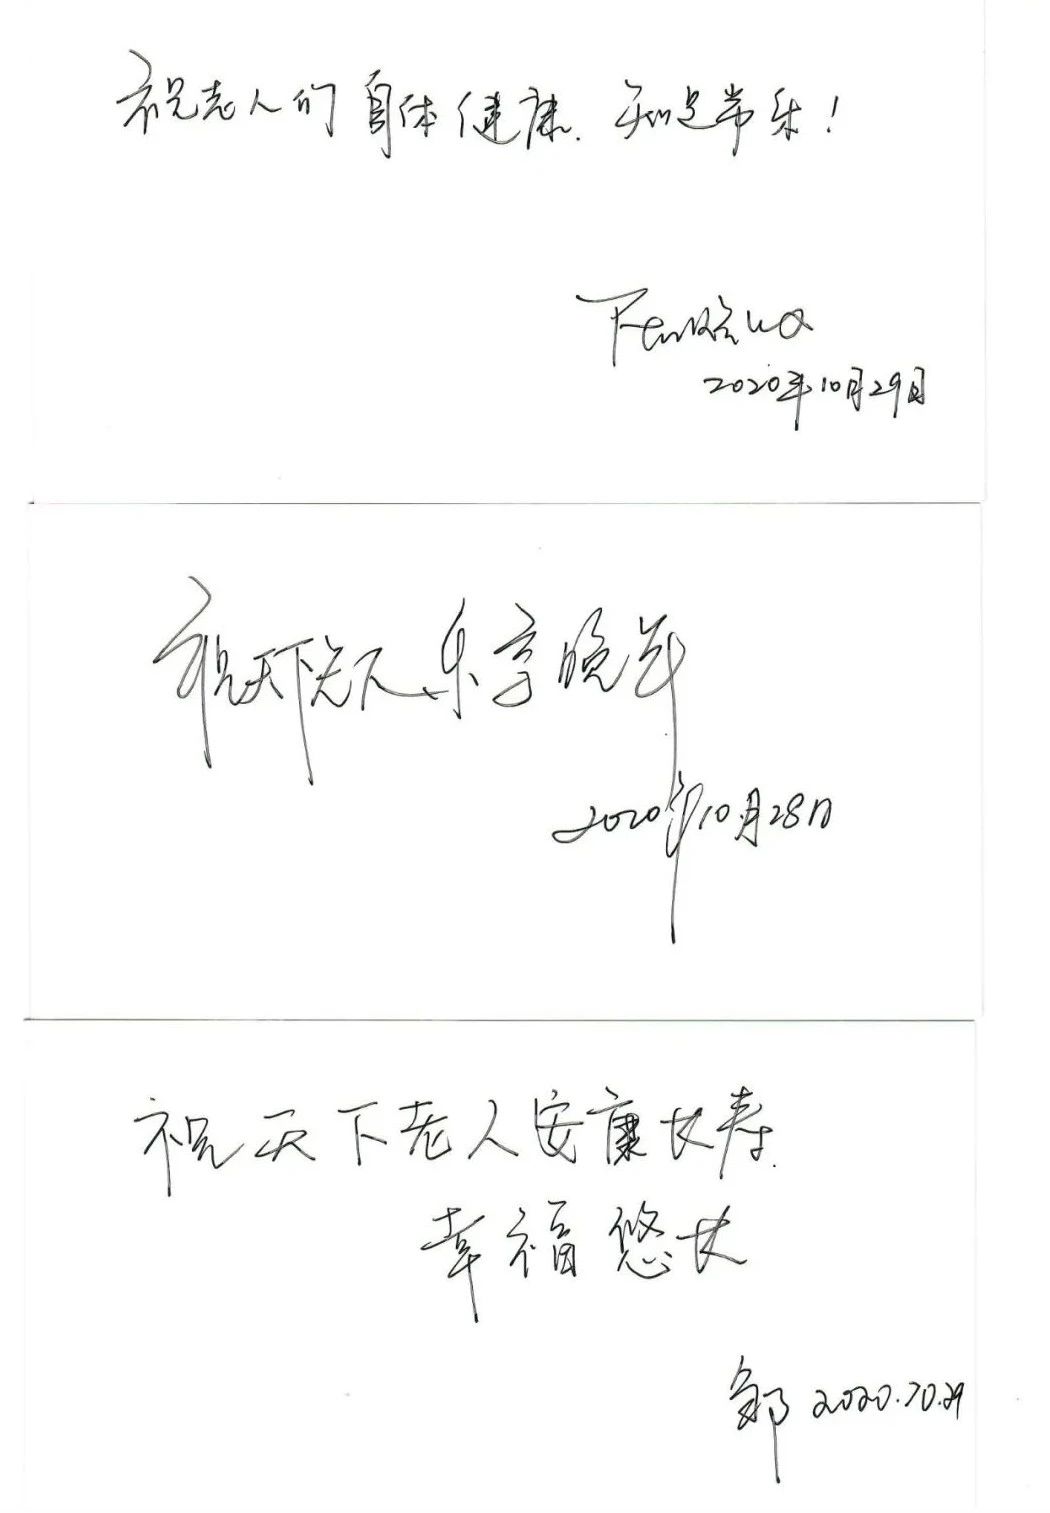 祝老人们身体健康、知足常乐！
2020年10月29日
祝天下老人、乐享晚年
2020年10月28日
祝天下老人安康长寿
幸福悠长
邹 2020.10.29